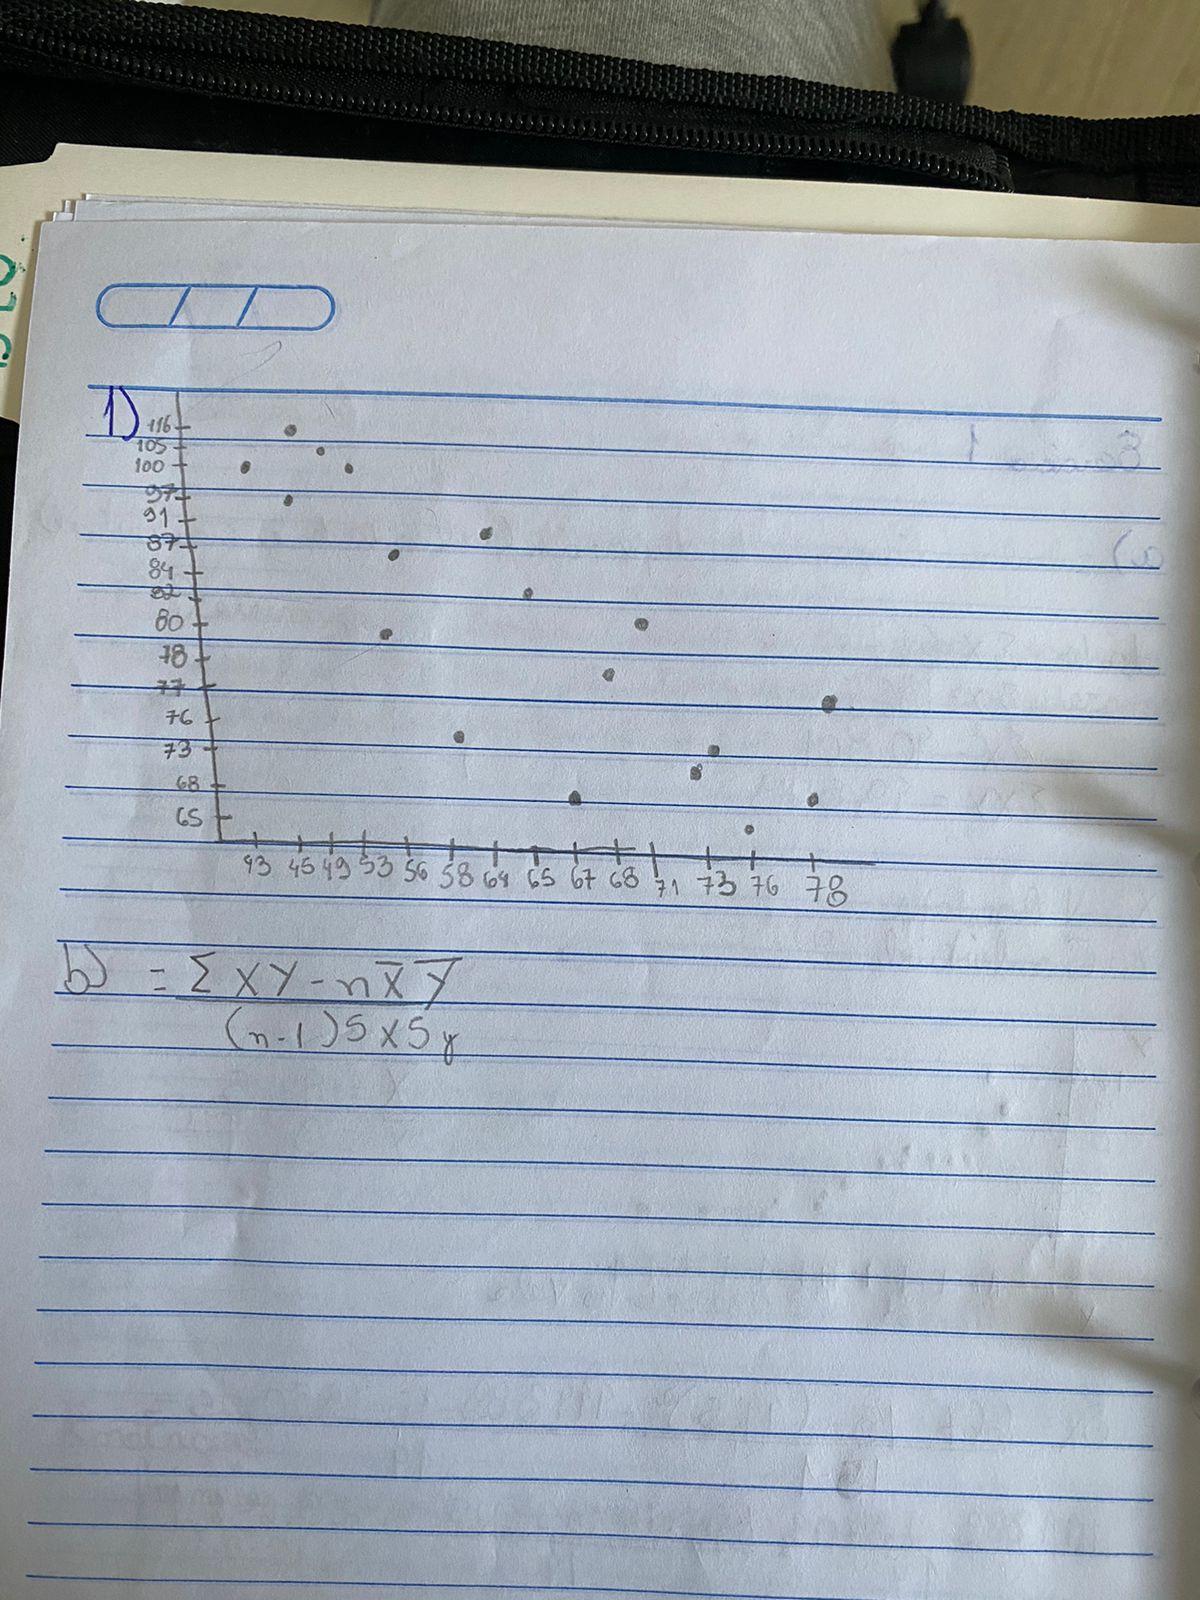 1)
116
105
100
97
91
87
84
82
80
78
77
76
73
68
65
43 45 49 53 56 58 64 65 67 68 71 73 76 78
b) = Σ XY - n X̅ Y̅
(n-1) S X S y